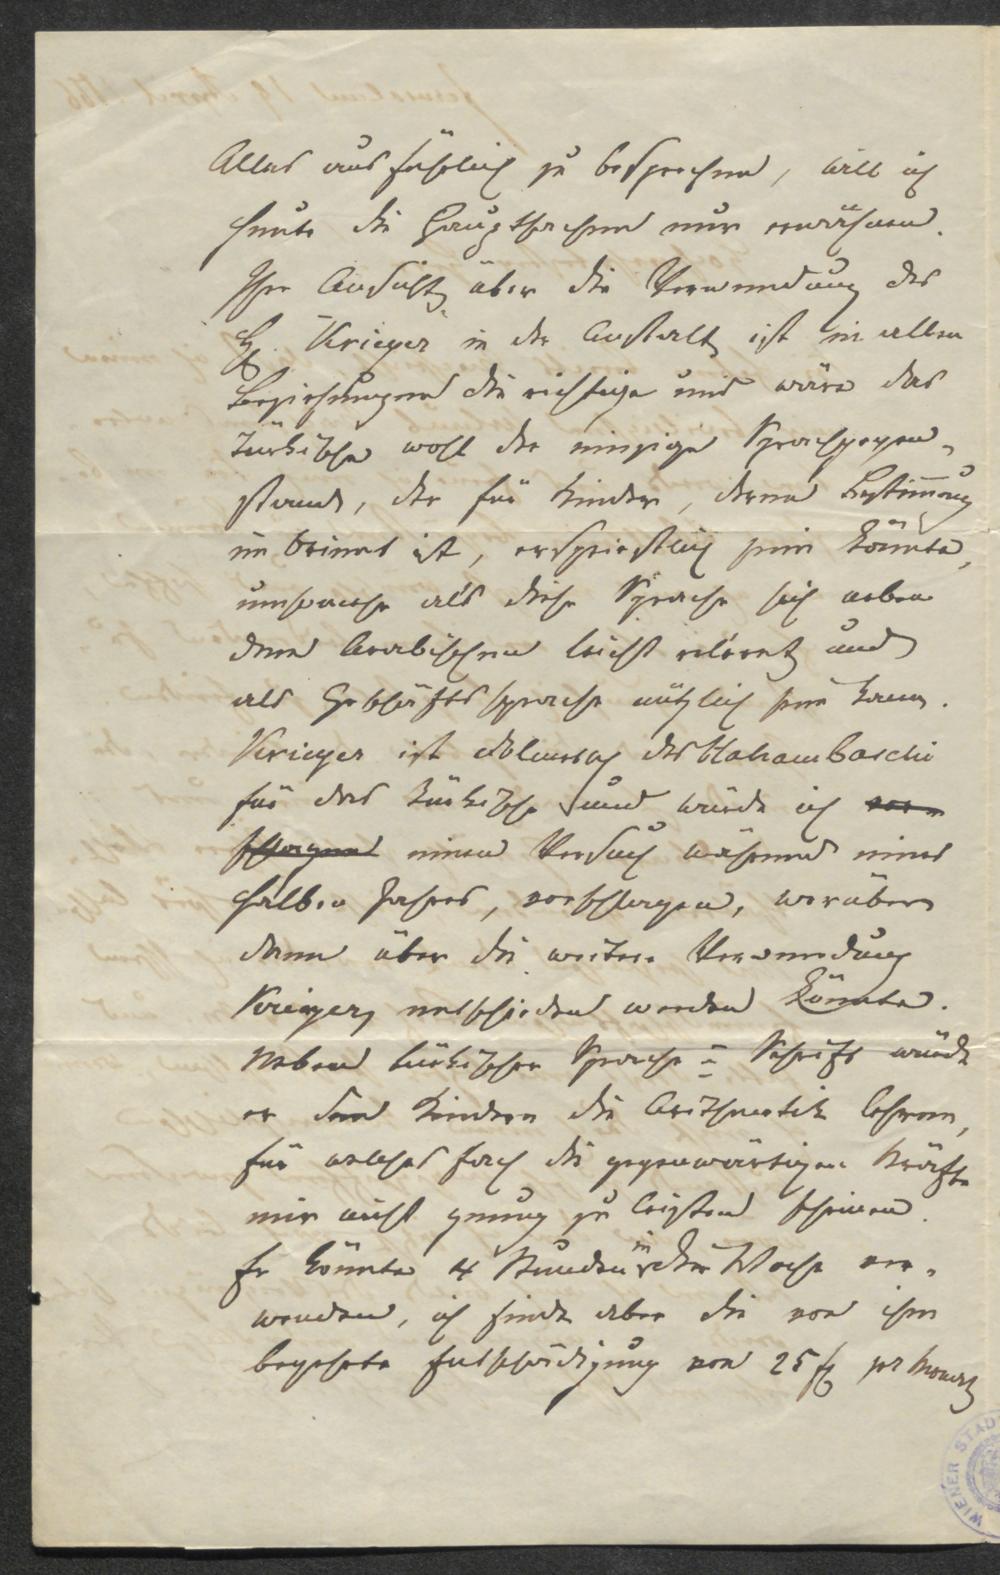 Alles ausführlich zu besprechen, will ich
heute die Hauptsachen nur erwähnen.
Ihre Ansicht über die Verwendung des
H. Krieger in der Anstalt ist in allen
Beziehungen die richtige und wäre das
Türkische wohl der einzige Sprachgegen-
stand, der für Kinder, deren Bestimmung
im Orient ist, ersprießlich sein könnte,
umsomehr als diese Sprache sich neben
dem Arabischen leicht erlernt und
als Geschäftssprache nützlich sein kann.
Krieger ist Dolmetsch des Haham Baschi
für das Türkische und würde ich vor-
schlagen einen Versuch während eines
halben Jahres, vorschlagen, worüber
dann über die weitere Verwendung
Kriegers entschieden werden könnte.
Neben türkischer Sprache u Schrift würde
er den Kindern die Arithmetik lehren,
für welches Fach die gegenwärtigen Kräfte
mir nicht genug zu leisten scheinen.
Er könnte 4 Stunden in der Woche ver-
wenden, ich finde aber die von ihm
begehrte Entschädigung von 25 f pr Monat
WIENER STAD